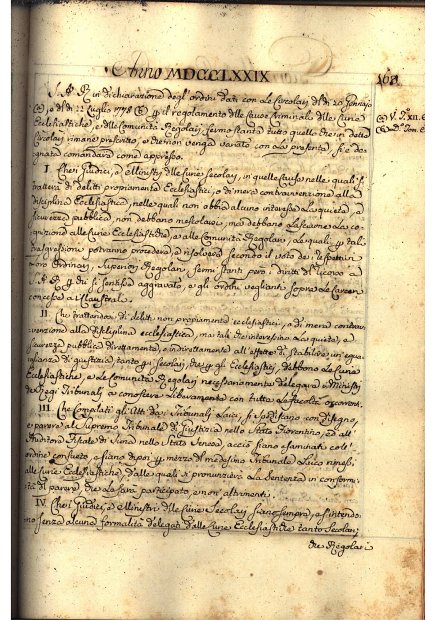 Anno MDCCLXXIX
168
S. A. R. in dichiarazione degl'ordini dati con Le Circolari del dì 20 Gennajo
e del dì 22 Luglio 1778 p il regolamento delle cause Criminali delle Curie
Ecclesiastiche, e delle Comunità Regolari, ferme stante tutto quello che in dette
Circolari rimane prescritto, e che non venga variato con La presente, si è de
gnata comandare come appresso.
I. Che i Giudici, e Ministri delle Curie Secolari, in quelle cause nelle quali si
tratterà di delitti propriamente Ecclesiastici, o di mera contravvenzione alla
disciplina Ecclesiastica, nelle quali non abbia alcuno interesse La quiete, e
sicurezza pubblica, non debbano mescolarsi, ma debbano Lasciarne La co
gnizione alle Curie Ecclesiastiche, e alle Comunità Regolari, Le quali p tali
trasgressioni potranno procedere, e risolvere secondo il voto dei respettivi
Loro Ordinari, Superiori Regolari, fermi stanti però i diritti di ricorso a
S. A. R. di chi si sentisse aggravato, e gli ordini veglianti sopra Le Carceri
concesse a Claustrali.
II. Che trattandosi di delitti non propriamente ecclesiastici, o di mera contrav
venzione alla disciplina ecclesiastica, ma tali che interessino La quiete, e
sicurezza pubblica direttamente, o indirettamente all'effetto di stabilire un'egua
glianza di giustizia tanto p i Secolari, che p gli Ecclesiastici, debbono Le Curie
Ecclesiastiche, e Le Comunità Regolari necessariamente delegare i Ministri
dei Regi Tribunali a conoscere Liberamente con tutte Le facoltà occorrenti.
III. Che Compilati gli Atti da i Tribunali Laici, si spediscano con disegno,
e parere al Supremo Tribunale di Giustizia nello Stato Fiorentino, ed all'
Auditore Fiscale di Siena nello Stato Senese, acciò siano esaminati coll'
ordine consueto, e siano di poi p mezzo del medesimo Tribunale Laico rimessi
alle Curie Ecclesiastiche, dalle quali si pronunzierà La Sentenza in conform
ità di parere, che Le sarà participato, e non altrimenti.
IV. Che i Giudici, e Ministri delle Curie Secolari siano sempre, e s'intendo
no senza alcuna formalità delegati dalle Curie Ecclesiastiche tanto Secolari,
che Regolari